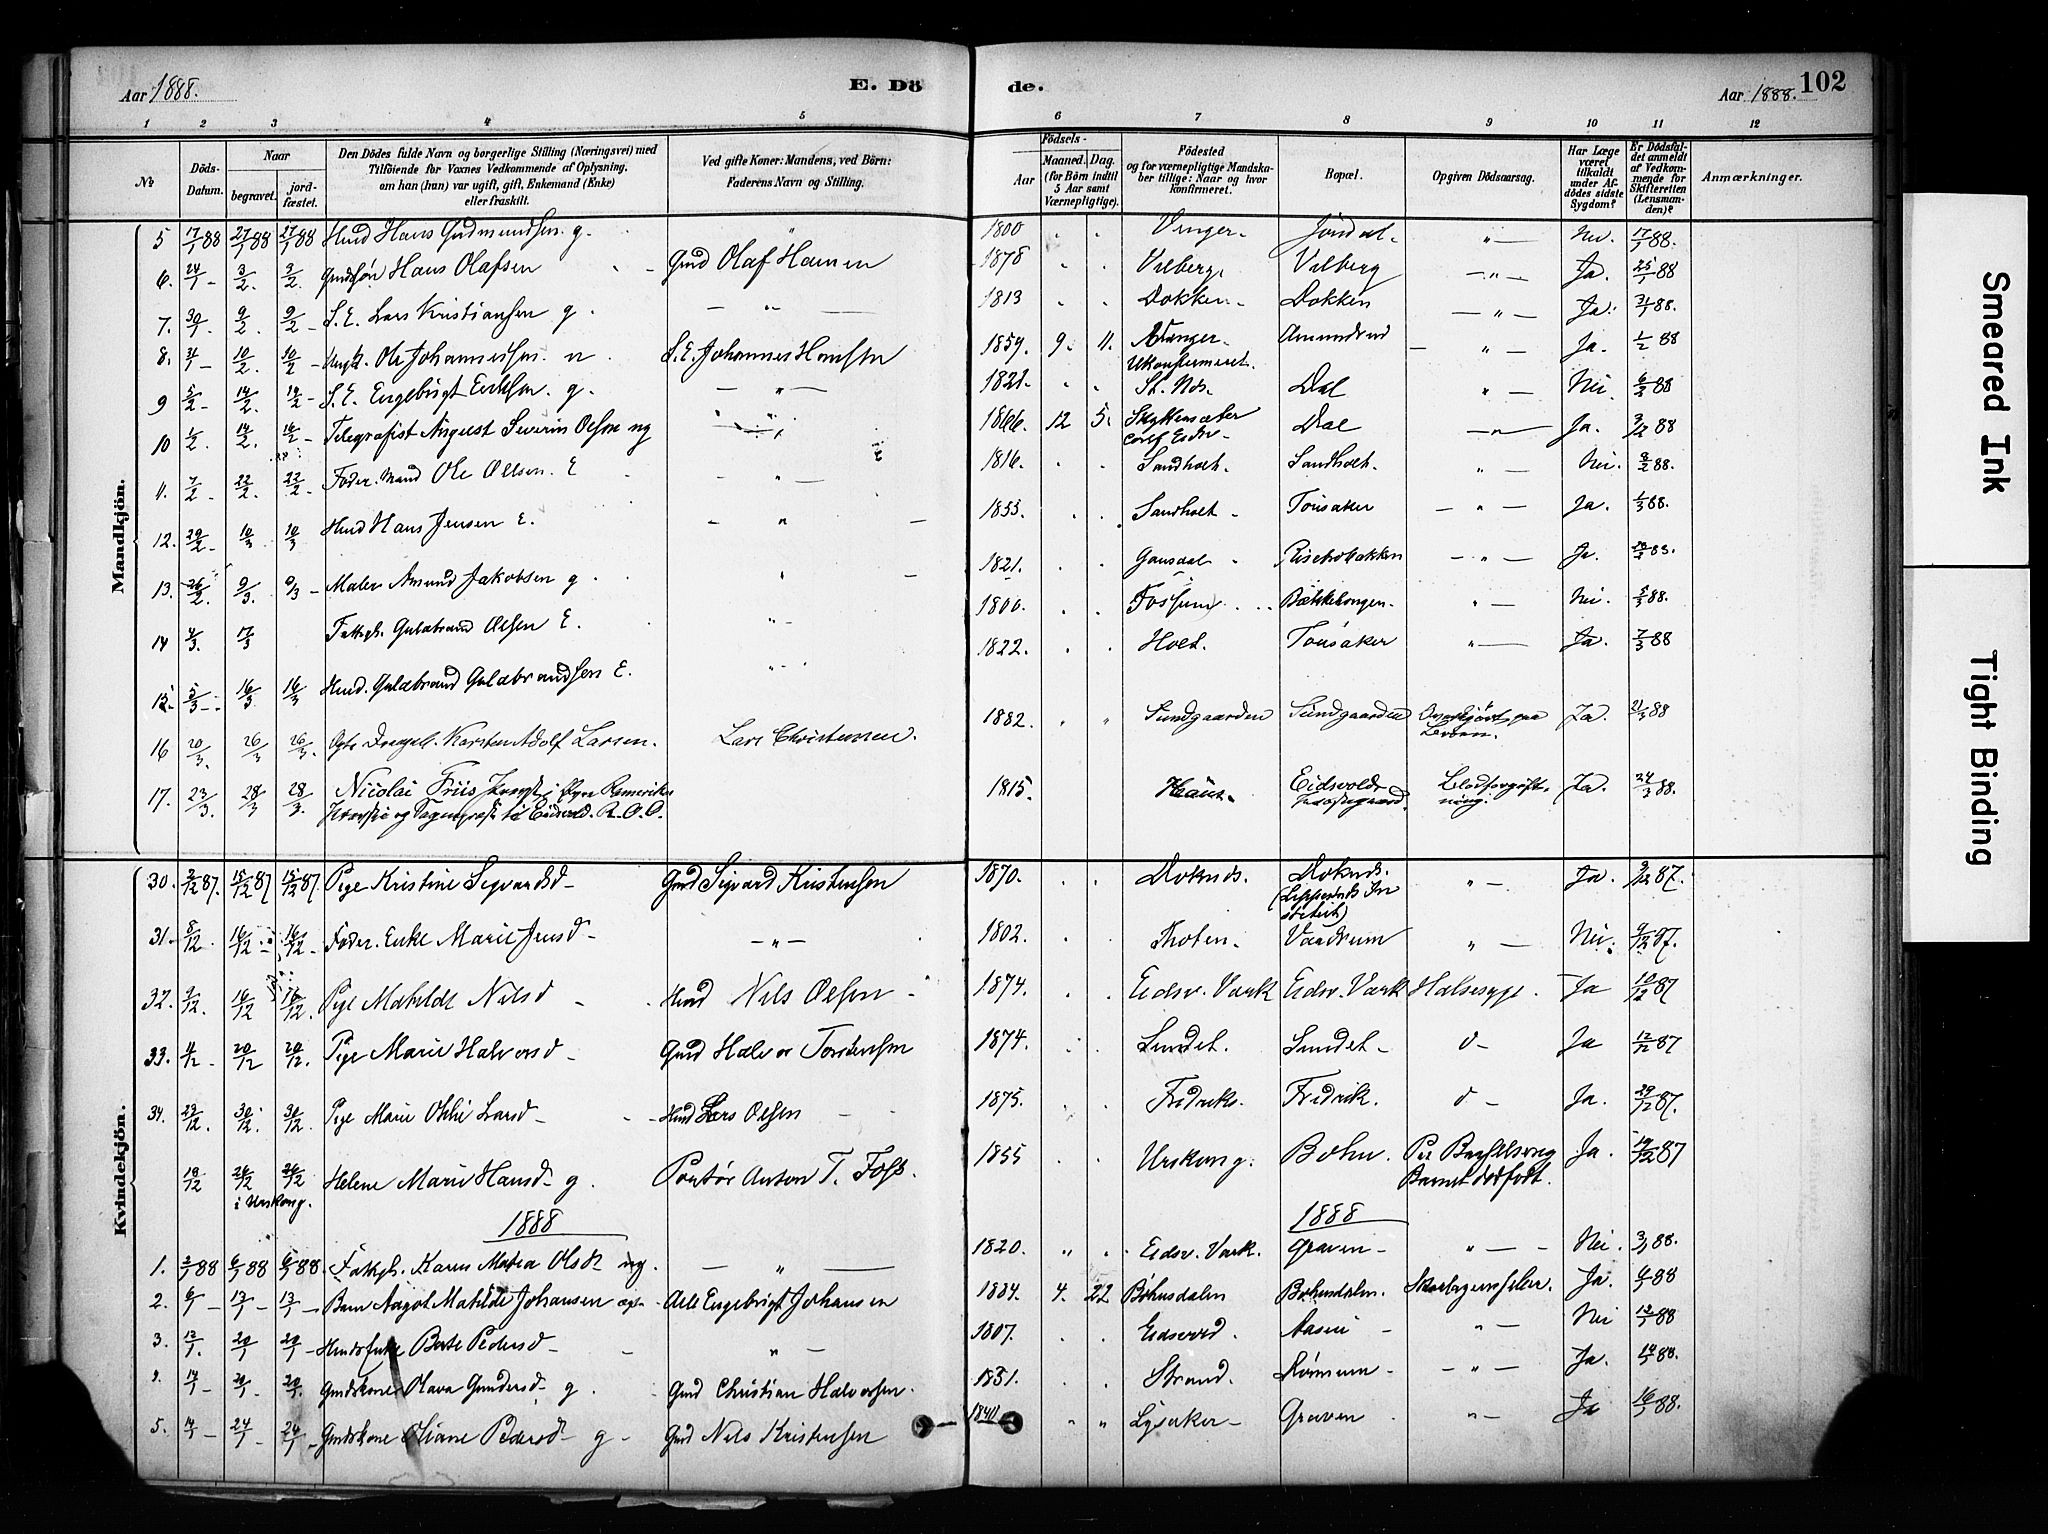 Aar 1888. E. Dö de. Aar 1888. 102
1 2 3 4 5 6 7 8 9 10 11 12
No Döds-Datum. Naar begravet. jord-fæstet. Den Dödes fulde Navn og borgerlige Stilling (Næringsvei) med Tilföiende for Voxnes Vedkommende af Oplysning. om han (hun) var ugift, gift, Enkemand (Enke) eller fraskilt. Ved gifte Koner: Mandens, ved Börn: Faderens Navn og Stilling. Födsels- Aar Maaned. Dag. (for Börn indtil 5 Aar samt Værnepligtige). Födested og for værnepligtige Mandskaber tillige: Naar og hvor konfirmeret. Bopæl. Opgiven Dödsaarsag. Har Læge været tilkaldt under Afdödes sidste Sygdom? Er Dödsfaldet anmeldt af Vedkommende for Skifteretten (Lensmanden)? Anmærkninger.
Mandkjön.
5 17/1 88 27/1 88 27/1 88 Huusd Hans Gudmundsen. g. " 1800 Vinger. Jöndal. " Nei. 17/1 88.
6. 24/1 - 3/2. 3/2. Gmdssøn Hans Olafsen Gmd Olaf Hansen 1878 Vilberg, Vilberg " Ja. 25/1 88
7. 30/1 9/2. 9/2 - S.E. Lars Kristiansen g. " 1813 Dokken. Dokken " Ja. 31/1 88.
8. 31/1 - 10/2. 10/2 - Ungk. Ole Johannessen. S.E. Johannes Hansen 1859. 9. 11. Ukonfirmeret. Amundrud " Ja. 1/2 88
9 5/2 - 14/2. 14/2 - S.E. Engebrigt Eriksen. g. " 1821. St. Nds. Dal " Nei 6/2 88
10 1/2 14/2. 14/2 - Telegrafist August Severin Olsen ug " 1866. 12 5. Dal " Ja. 3/2 88
11. 7/2 - 22/2. 22/2 - Föder. Mand Ole Olsen. E " 1816. Sandholt. Sandholt. " Nei. 8/2 88.
12. 29/2 - 10/3 10/3 Hans Jensen E. " 1855. Sandholt - Tonsaker " Ja. 1/3 88.
13. 26/2. 9/3. 9/3 - Maler Amund Jakobsen g. " 1821. Gansdal Risetrobakken " Ja.
14 4/3. 17/3 Fattigl. Guldbrand Olsen E. " 1800. Fossum Bækkelongen. " Nei. 5/3 88.
15. 5/3 - 16/3 16/3 Guldbrand Guldbrandsen E. " 1822. Holt. Tonsaker " Ja. 7/3 88
16 20/3. 26/3 26/3. Karsten Adolf Larsen. Lars Christensen. 1882. Sundgaarden Sundgaarden Ja. 21/3 88
17. 23/3. 28/3 28/3. Nicolai Friis Provst i Øvre Romerike Provsti og Sognepræst til Eidsvold. R. O. O. 1815. Haus. Eidsvolds Præstegaard. Blodforgiftning. Ja. 24/3 88.
Kvindekjön.
30. 3/12 87. 15/12 87 15/12 87. Pige Kristine Sigvardsd - Gmd Sigvard Kristensen 1870. Doknds. Doknds. " Ja. 9/12 87.
31. 8/12. 16/12. 16/12. Föder. Enke Marie Jensd - " 1802. Thoten. " Nei. 9/12 87.
32. 9/12. 16/12 16/12. Pige Mathilde Nilsd - Nils Olsen - 1874. Eidsv. Værk Eidsv. Værk Halssyge. Ja 10/12 87
33. 11/12 - 20/12 20/12. Pige Marie Halvorsd - Gmd Halvor Torstensen 1874. Sundet. Sundet - d - Ja 12/12 87
34. 23/12. 30/12. 30/12. Pige Marie Othie Larsd - Lars Olsen 1875. Fredriks. Fredrik. d - Ja. 29/12 87.
19/12 26/12 26/12 i Urskoug. Helene Marie Hansd - g. Anton T. Foss. 1855 Urskoug. Bohn. Paa Barselseng Barnet dødfødt. Ja. 19/12 87
1888 1888
1. 3/1 88 6/1 88 6/1 88. Fattigl. Karen Mathea Olsdt ug. " 1820. Eidsv. Værk. Graven - " Nei. 3/1 88.
2. 6/1 - 13/1 - 13/1 - Barn Aagot Mathilde Johansen Engebrigt Johansen 1884. 4. 22 Böhnsdalen Böhnsdalen. Skarlagensfeber. Ja. 6/1 88
3. 13/1. 20/1 20/1 Berte Pedersd - " 1807. Eidsvold. Aasen - " Nei 13/1 88
17/1 - 20/1. 20/1. Gmdskone Olava Gundersd - g. Gmd Christian Halvorsen. 1831. Strand. Römsum - " Ja. 88.
5. 17/1 - 24/1 - 24/1 - Gmdskone Oliane Pedersd - g - Gmd Nils Kristensen Lysaker - Graven " Ja 88.
Smeared Ink
Tight Binding